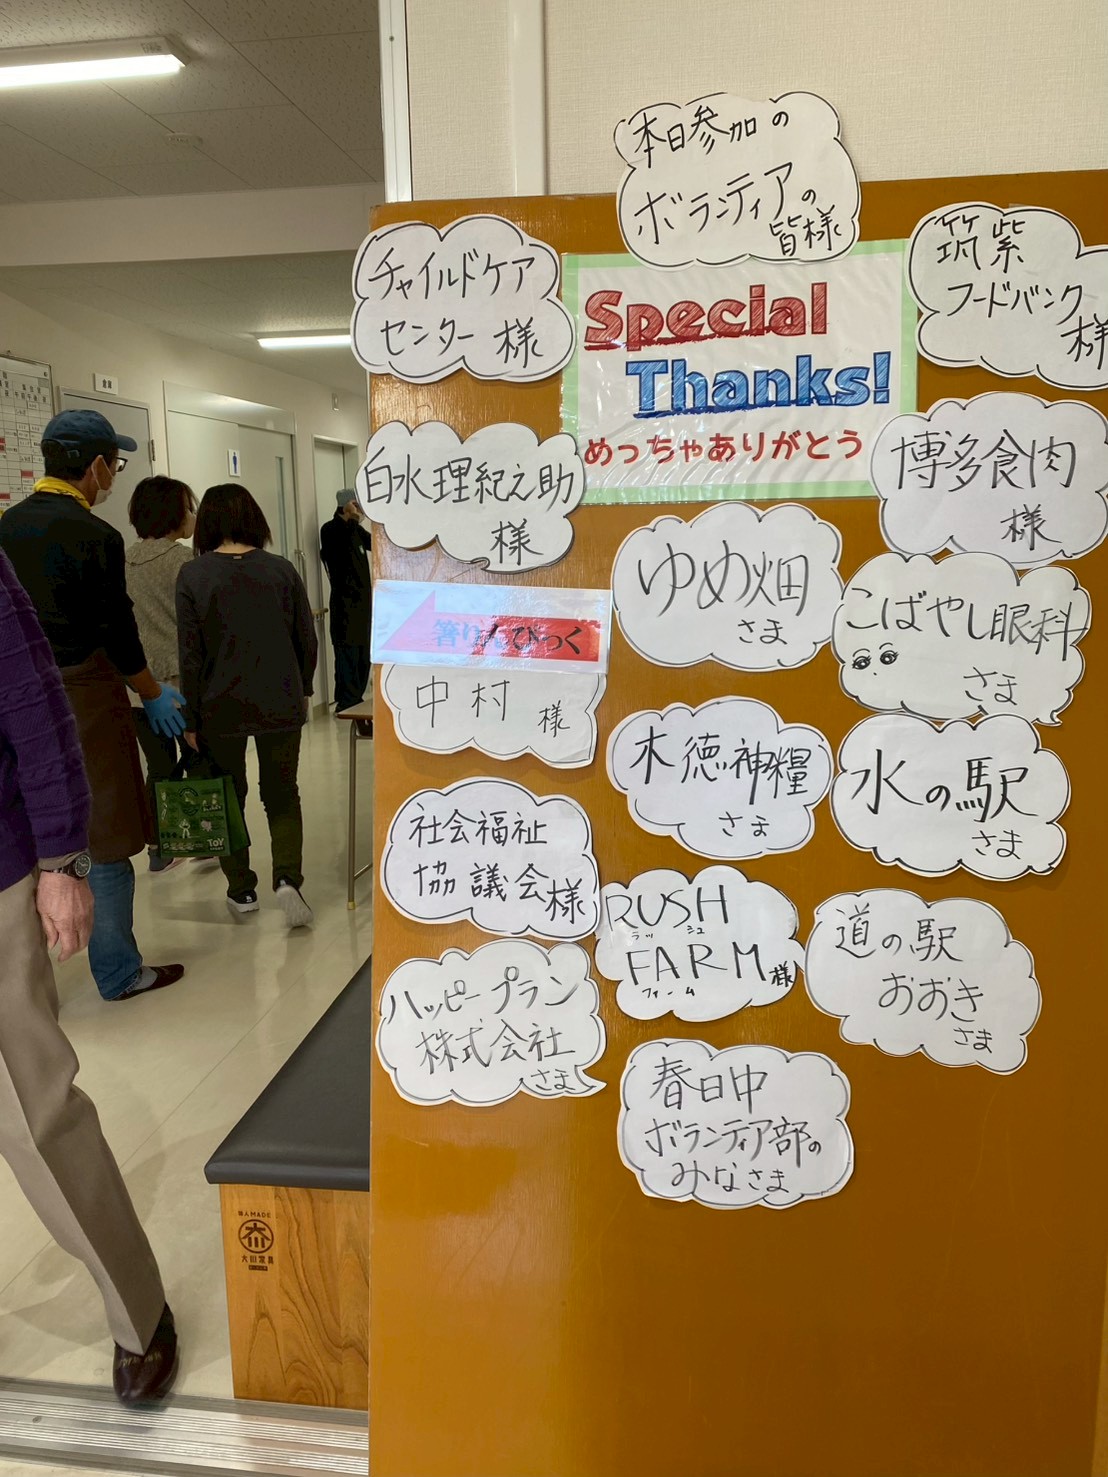 本日参加の
ボランティアの
皆様
チャイルドケア
センター 様
Special
Thanks!
めっちゃありがとう
筑紫
フードバンク
様
白水理紀之助
様
博多食肉
様
ゆめ畑
さま
こばやし眼科
さま
箸りんぴっく
中村
様
木徳神糧
さま
水の駅
さま
社会福祉
協議会様
RUSH
ラッシュ
FARM様
ファーム
道の駅
おおき
さま
ハッピープラン
株式会社
さま
春日中
ボランティア部の
みなさま
職人MADE
大川家具
TOY